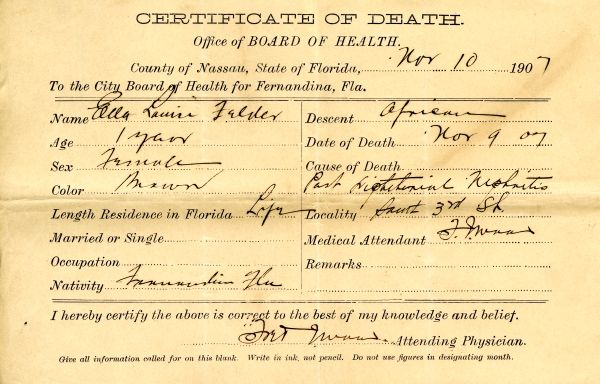 CERTIFICATE OF DEATH.
Office of BOARD OF HEALTH.
County of Nassau, State of Florida, Nov 10 1907
To the City Board of Health for Fernandina, Fla.
Name Ella Louise Felder
Age 1 year
Sex Female
Color Brown
Length Residence in Florida Life
Married or Single
Occupation
Nativity Fernandina Fla
Descent African
Date of Death Nov 9 07
Cause of Death
Nephritis
Locality South 3rd St
Medical Attendant
Remarks
I hereby certify the above is correct to the best of my knowledge and belief.
Attending Physician.
Give all information called for on this blank. Write in ink, not pencil. Do not use figures in designating month.